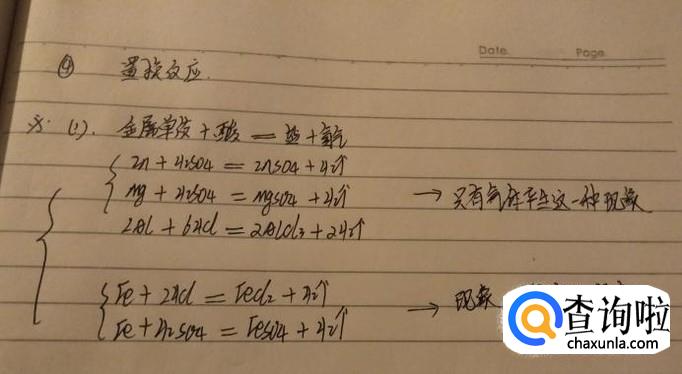 Date Page
④ 置换反应.
※ (1). 金属单质 + 酸 = 盐 + 氢气
Zn + H2SO4 = ZnSO4 + H2↑
Mg + H2SO4 = MgSO4 + H2↑ → 只有气体产生这一种现象
2Al + 6HCl = 2AlCl3 + 2H2↑
Fe + 2HCl = FeCl2 + H2↑ → 现象
Fe + H2SO4 = FeSO4 + H2↑
查询啦
chaxunla.com